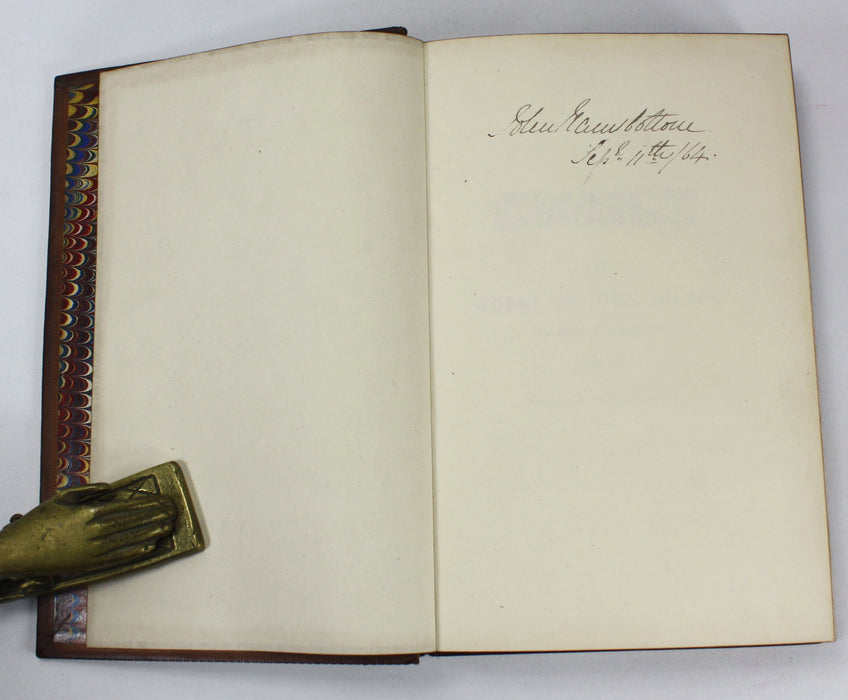 John Ramsbottom.
Sepr. 11th /64.